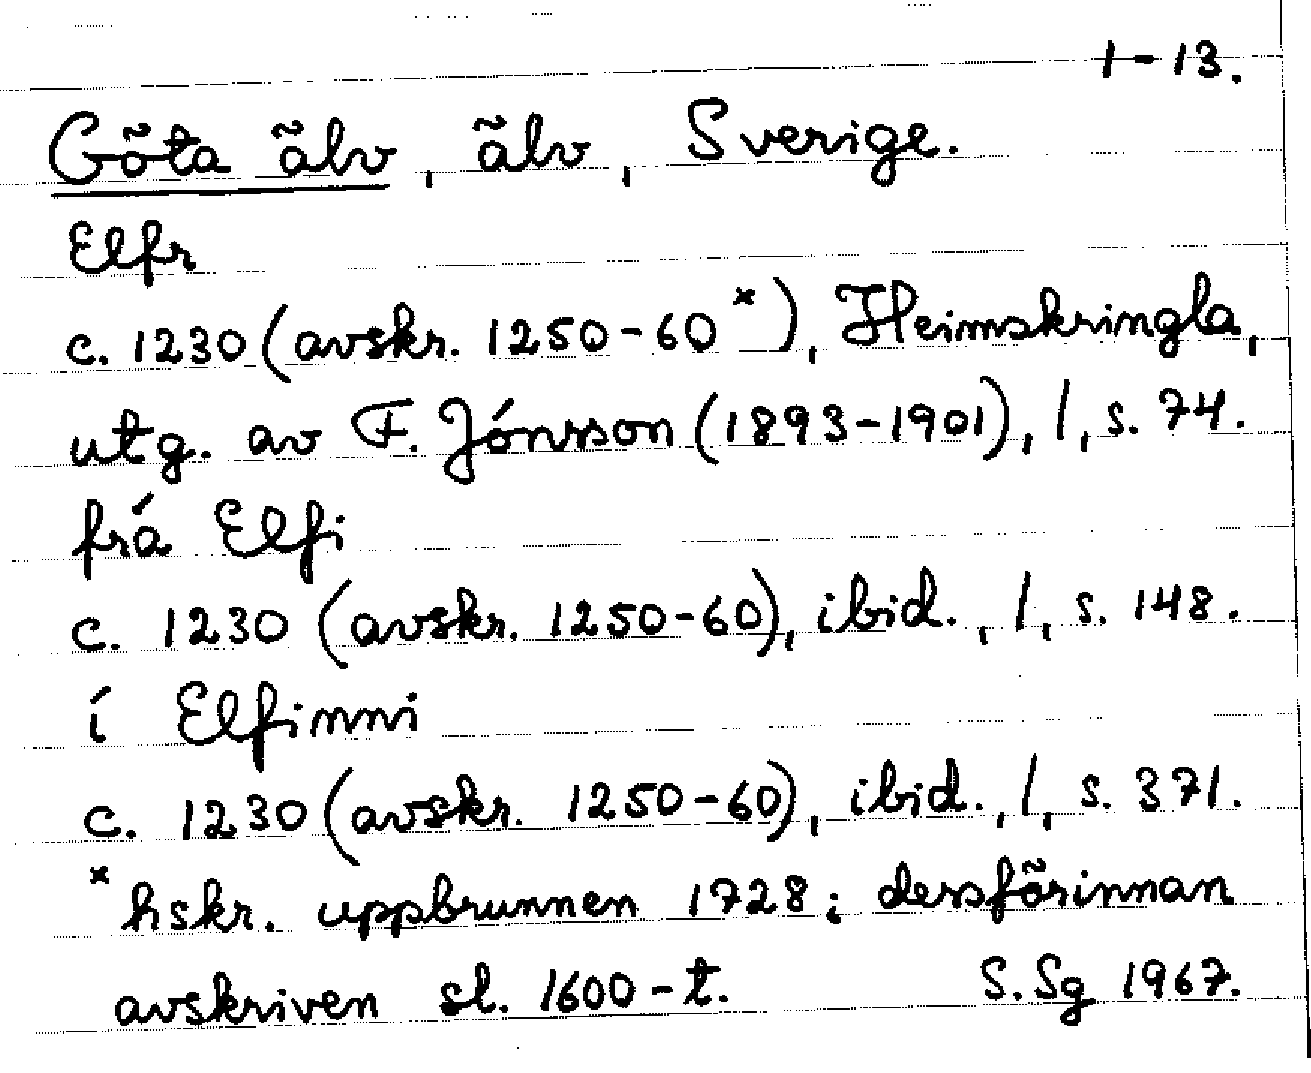 1-13.
Göta älv, älv, Sverige.
Elfr
c. 1230 (avskr. 1250-60*), Heimskringla,
utg. av F. Jónsson (1893-1901), 1, s. 74.
frá Elfi
c. 1230 (avskr. 1250-60), ibid., 1, s. 148.
í Elfinni
c. 1230 (avskr. 1250-60), ibid., 1, s. 371.
* hskr. uppbrunnen 1728; dessförinnan
avskriven sl. 1600-t. S. Sg 1967.